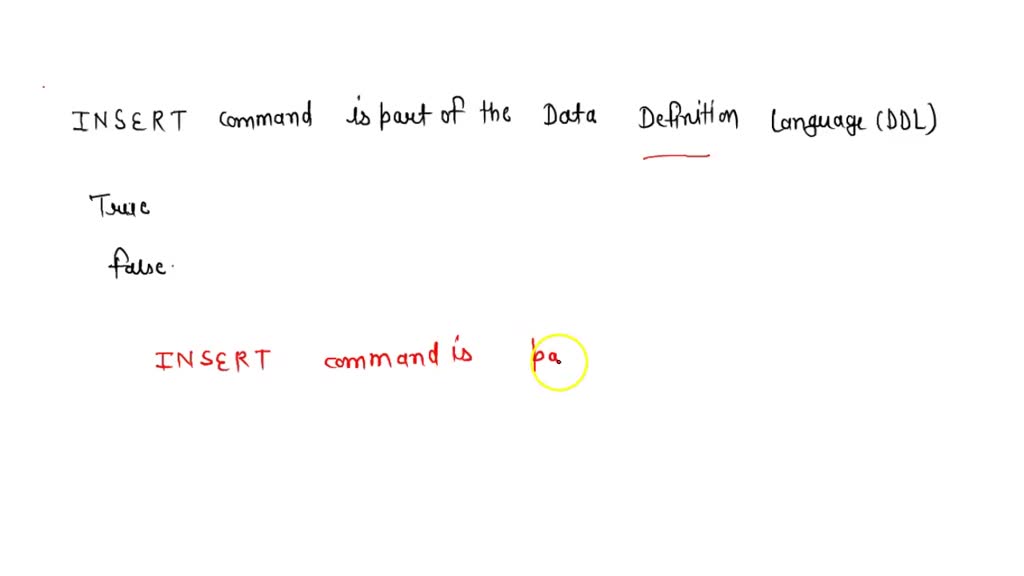 INSERT command is part of the Data Definition Language (DDL)
True
false.
INSERT command is pa